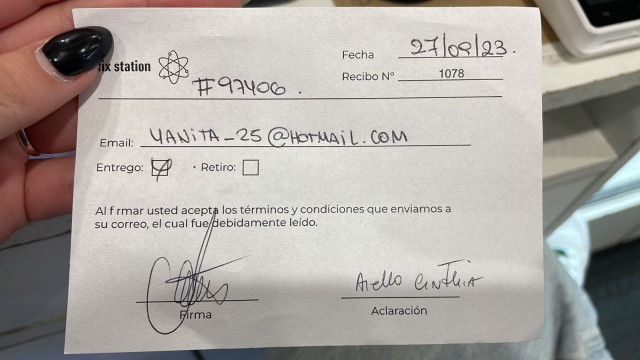 ix station
Fecha 27/09/23.
#97406.
Recibo N° 1078
Email: YANITA_25@HOTMAIL.COM
Entrego: · Retiro:
Al f rmar usted acepta los términos y condiciones que enviamos a
su correo, el cual fue debidamente leído.
Aiello Cinthia
Firma
Aclaración